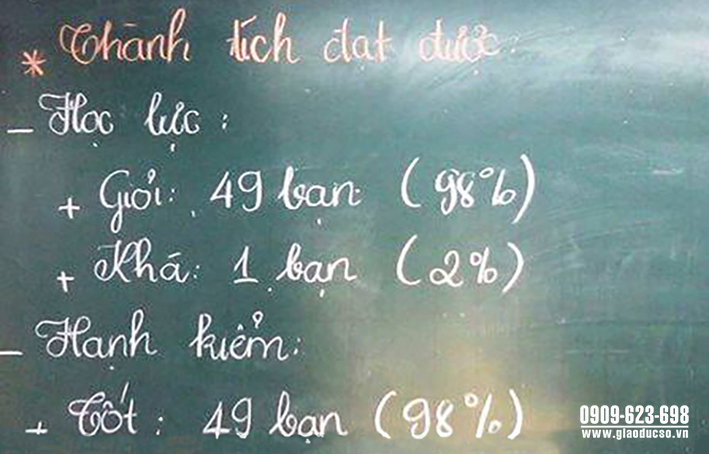 * Thành tích đạt được:
- Học lực :
+ Giỏi: 49 bạn (98%)
+ Khá: 1 bạn (2%)
- Hạnh kiểm:
+ Tốt : 49 bạn (98%)
0909-623-698
www.giaoducso.vn